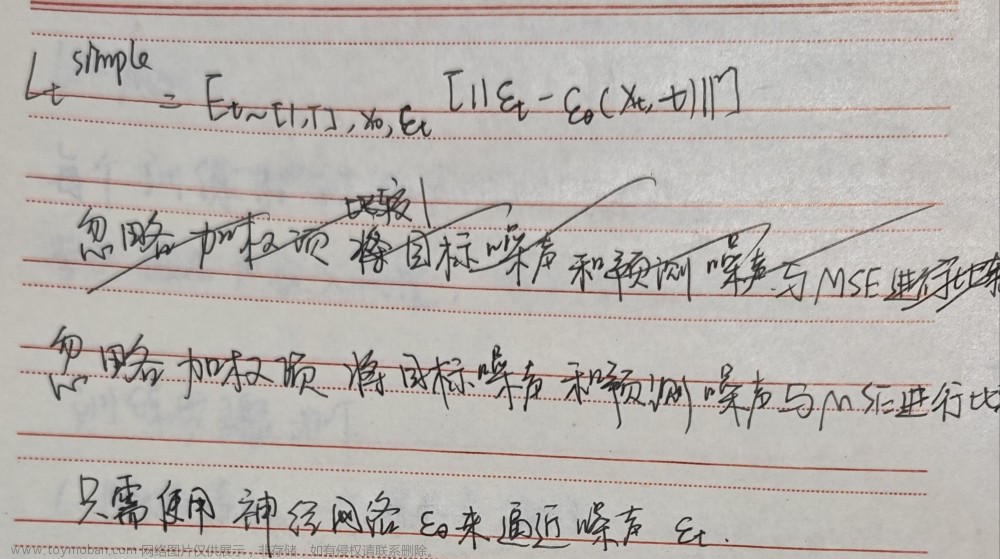 L_t^simple = E_{t~[1,T],x_0,ε_t} [||ε_t - ε_θ(x_t,t)||²]
比较
忽略加权项 将目标噪声和预测噪声与MSE进行比较
忽略加权项 将目标噪声和预测噪声与MSE进行比
只需使用神经网络 ε_θ来逼近噪声 ε_t.
www.toymoban.com 网络图片仅供展示,非存储,如有侵权请联系删除。